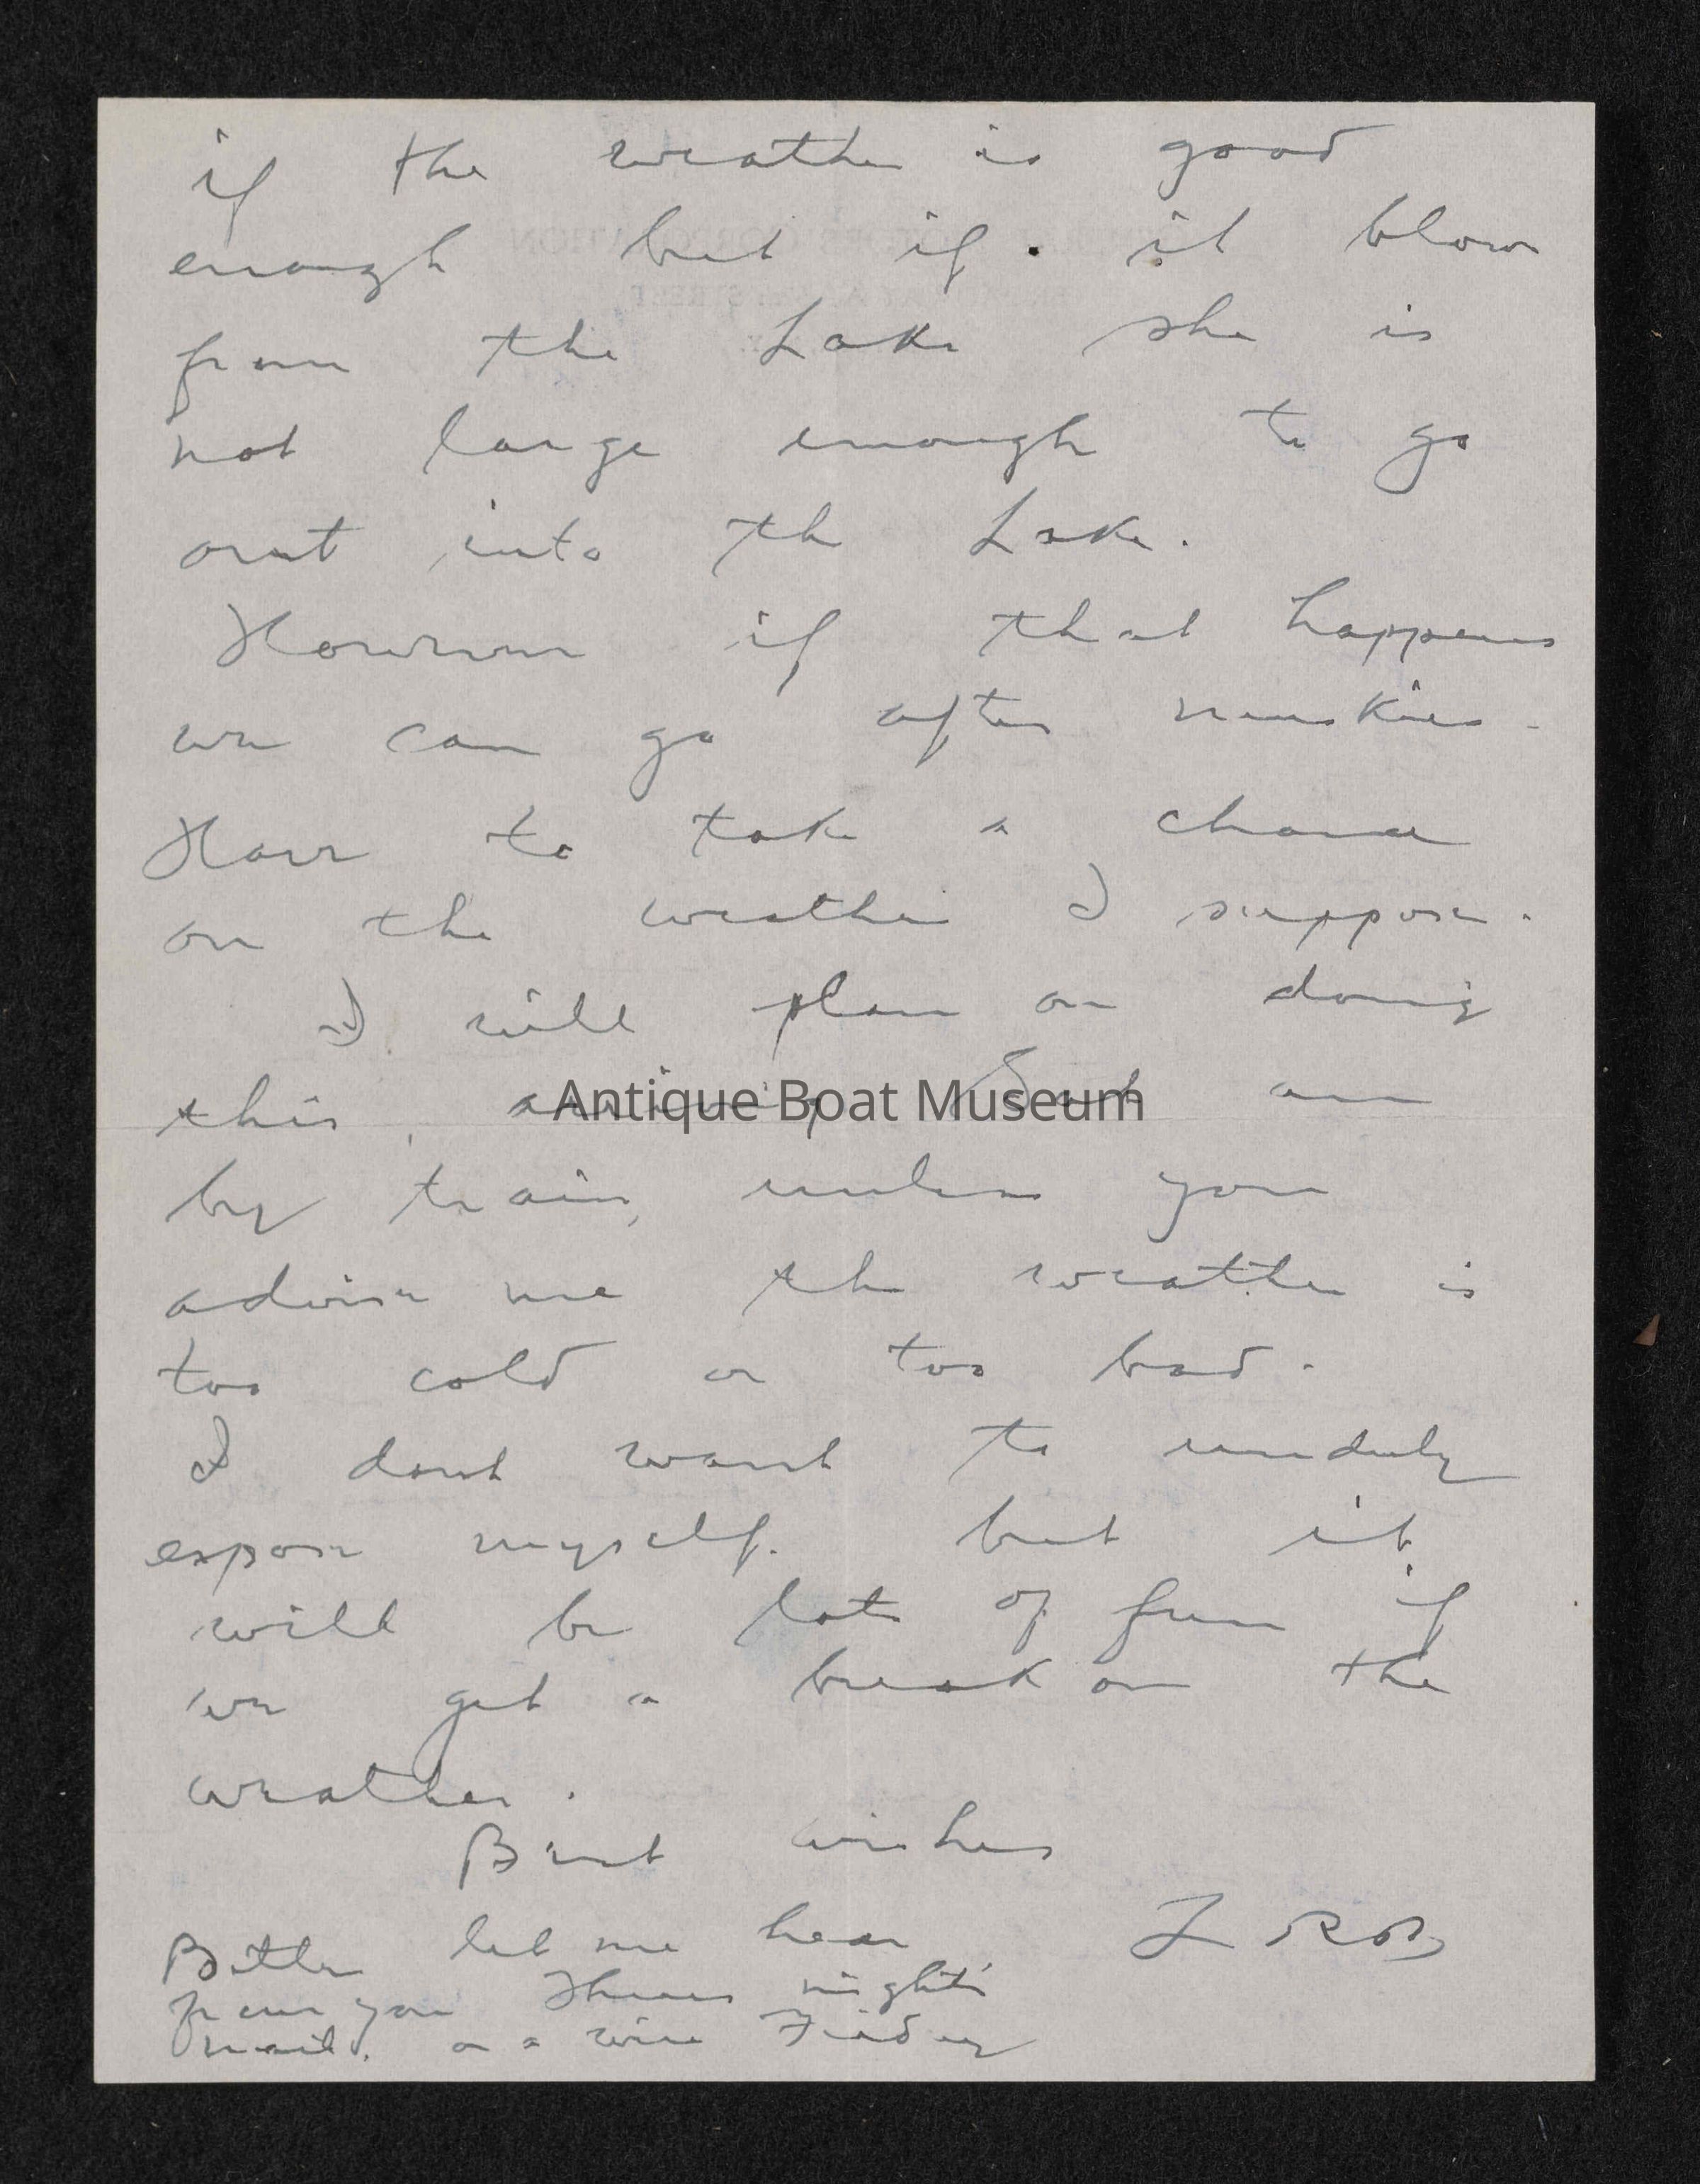 if the weather is good
enough but if it blows
from the Lake she is
not large enough to go
out into the Lake.
However if that happens
we can go after muskies.
Have to take a chance
on the weather I suppose.
I will plan on doing
this, arriving Sat am
by train, unless you
advise me the weather is
too cold or too bad.
I dont want to unduly
expose myself. but it
will be lots of fun if
we get a break on the
weather.
Best wishes
Better let me hear
from you Thurs night's
mail. or a wire Friday
Antique Boat Museum